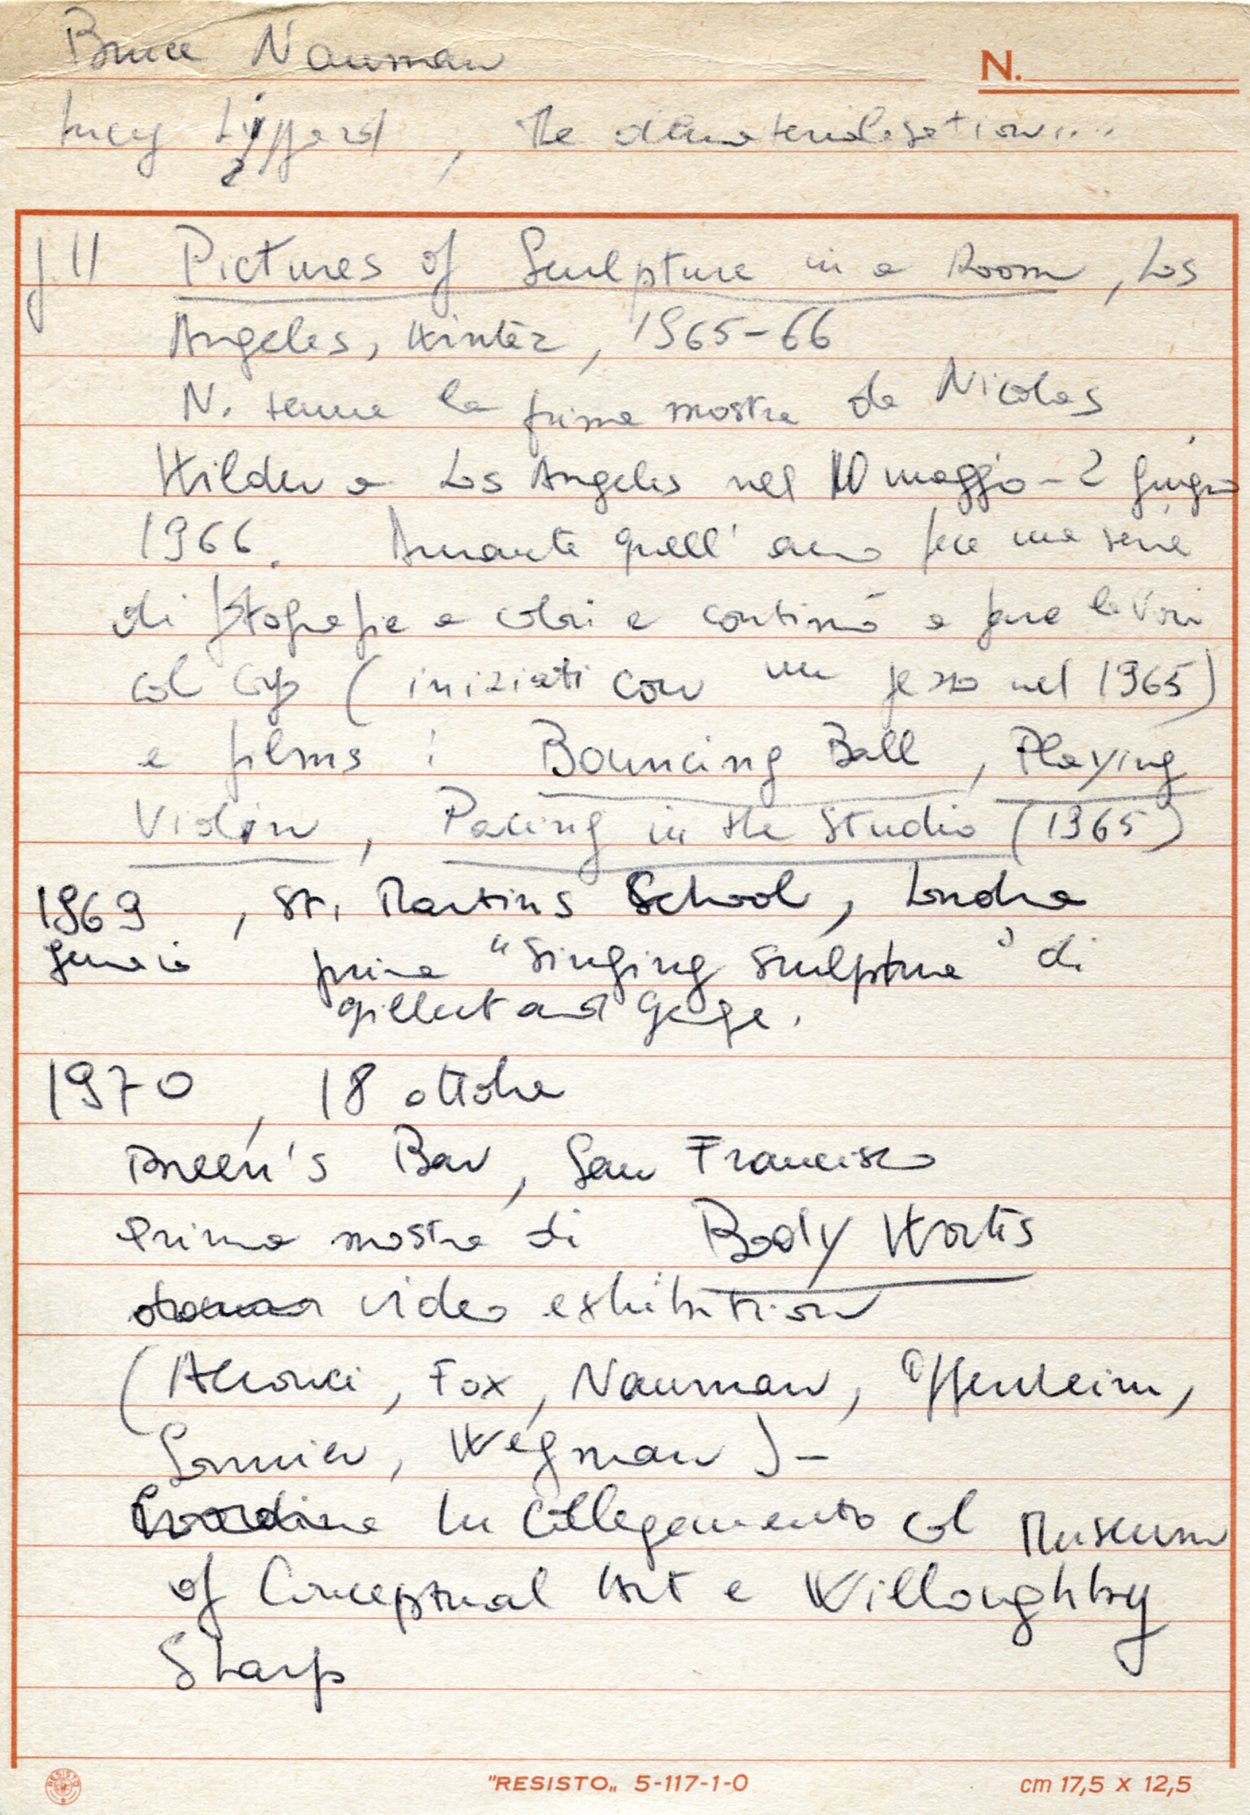 Bruce Nauman
N.
Lucy Lippard, The dematerialisation....
p. 11 Pictures of Sculpture in a Room, Los
Angeles, Winter, 1965-66
N. tenne la prima mostra da Nicolas
Wilder a Los Angeles nel 10 maggio - 2 giugno
1966. Durante quell' anno fece una serie
di fotografie a colori e continuò a fare lavori
col corpo (iniziati con un pezzo nel 1965)
e films: Bouncing Ball, Playing
Violin, Pacing in the Studio (1965)
1969, St. Martins School, Londra
gennaio prima "Singing Sculpture" di
Gilbert and George.
1970, 18 ottobre
Breen's Bar, San Francisco
Prima mostra di Body Works
video exhibition
(Acconci, Fox, Nauman, Oppenheim,
Sonnier, Wegman) -
In collegamento col Museum
of Conceptual Art e Willoughby
Sharp
RESISTO
"RESISTO„ 5-117-1-0
cm 17,5 x 12,5